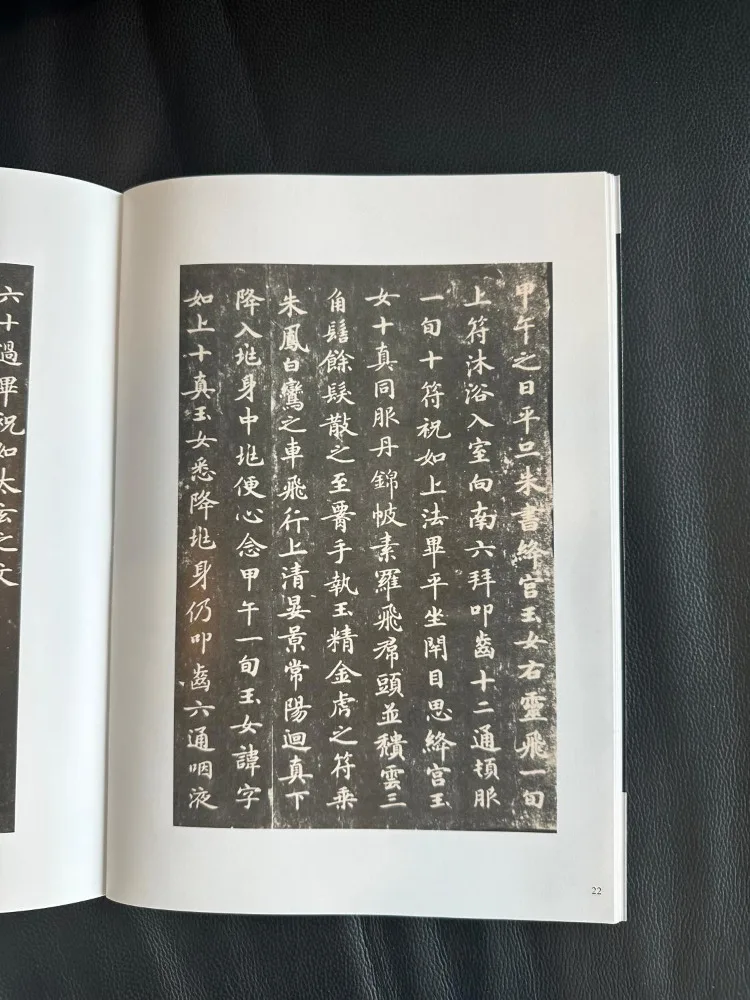 甲午之日平旦朱書絳宮玉女右靈飛一旬
上符沐浴入室向南六拜叩齒十二通頓服
一旬十符祝如上法畢平坐閇目思絳宮玉
女十真同服丹錦帔素羅飛帬頭並穨雲三
角髻餘髮散之至腰手執玉精金虎之符乗
朱鳳白鸞之車飛行上清晏景常陽迴真下
降入㘴身中㘴便心念甲午一旬玉女諱字
如上十真玉女悉降㘴身仍叩齒六通咽液
六十過畢祝如太玄之文
22